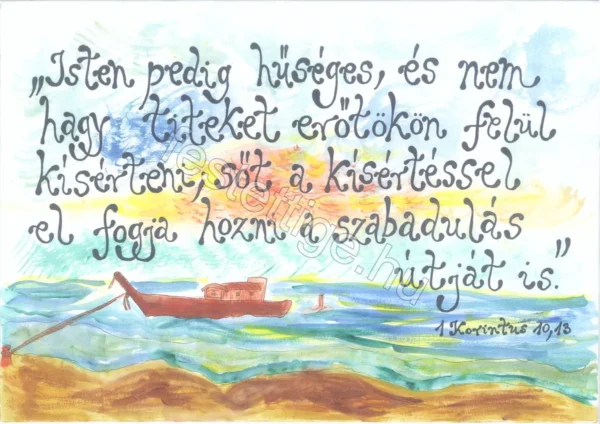 „Isten pedig hűséges, és nem
hagy titeket erőtökön felül
kísérteni; sőt a kísértéssel
el fogja hozni a szabadulás
útját is."
1 Korintus 10,13
festettige.hu